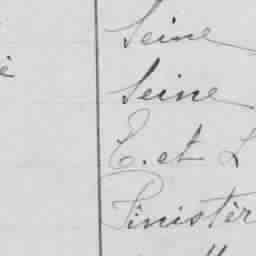 Seine
Seine
E. et L
Finistèr